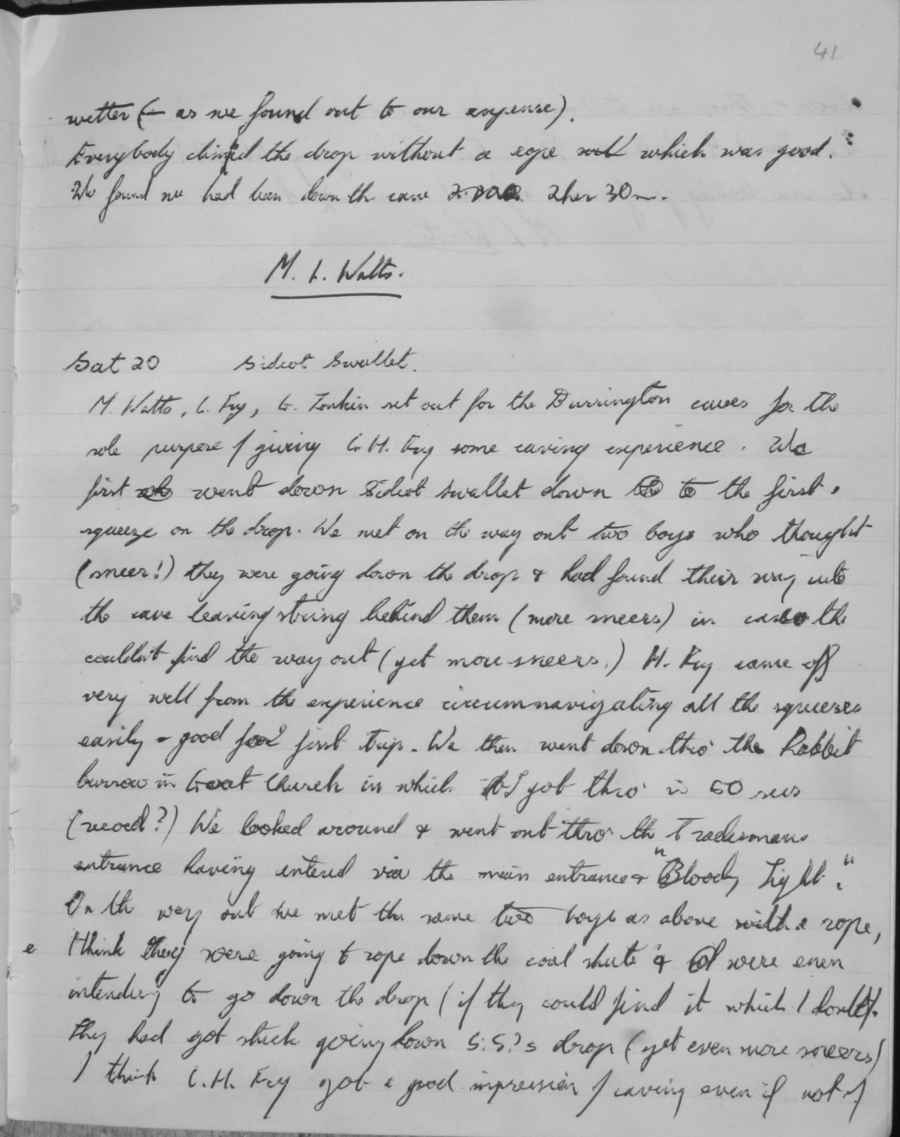 41
wetter (– as we found out to our expense).
Everybody climbed the drop without a rope which was good.
We found we had been down th cave 2hrs 30m.
M. L. Watts.
Sat 20 Sidcot Swallet.
M. Watts, C. Fry, G. Tonkin set out for the Burrington caves for the
sole purpose of giving C.H. Fry some caving experience. We
first went down Sidcot Swallet down to the first
squeeze on the drop. We met on the way out two boys who thought
(sneer!) they were going down the drop & had found their way into
the cave leaving string behind them (more sneers) in case the
couldn't find the way out (yet more sneers.) H. Fry came off
very well from the experience circumnavigating all the squeezes
easily – good for first trip. We then went down thro' the Rabbit
burrow in Goat Church in which I got thro' in 50 secs
(record?) We looked around & went out thro' th Tradesmans
entrance having entered via the main entrance & "Bloody Tight".
On th way out we met the same two boys as above with a rope,
I think they were going to rope down the coal shute & were even
intending to go down the drop (if they could find it which I doubt).
They had got stuck going down S.S.'s drop (yet even more sneers)
I think C.H. Fry got a good impression of caving even if not of